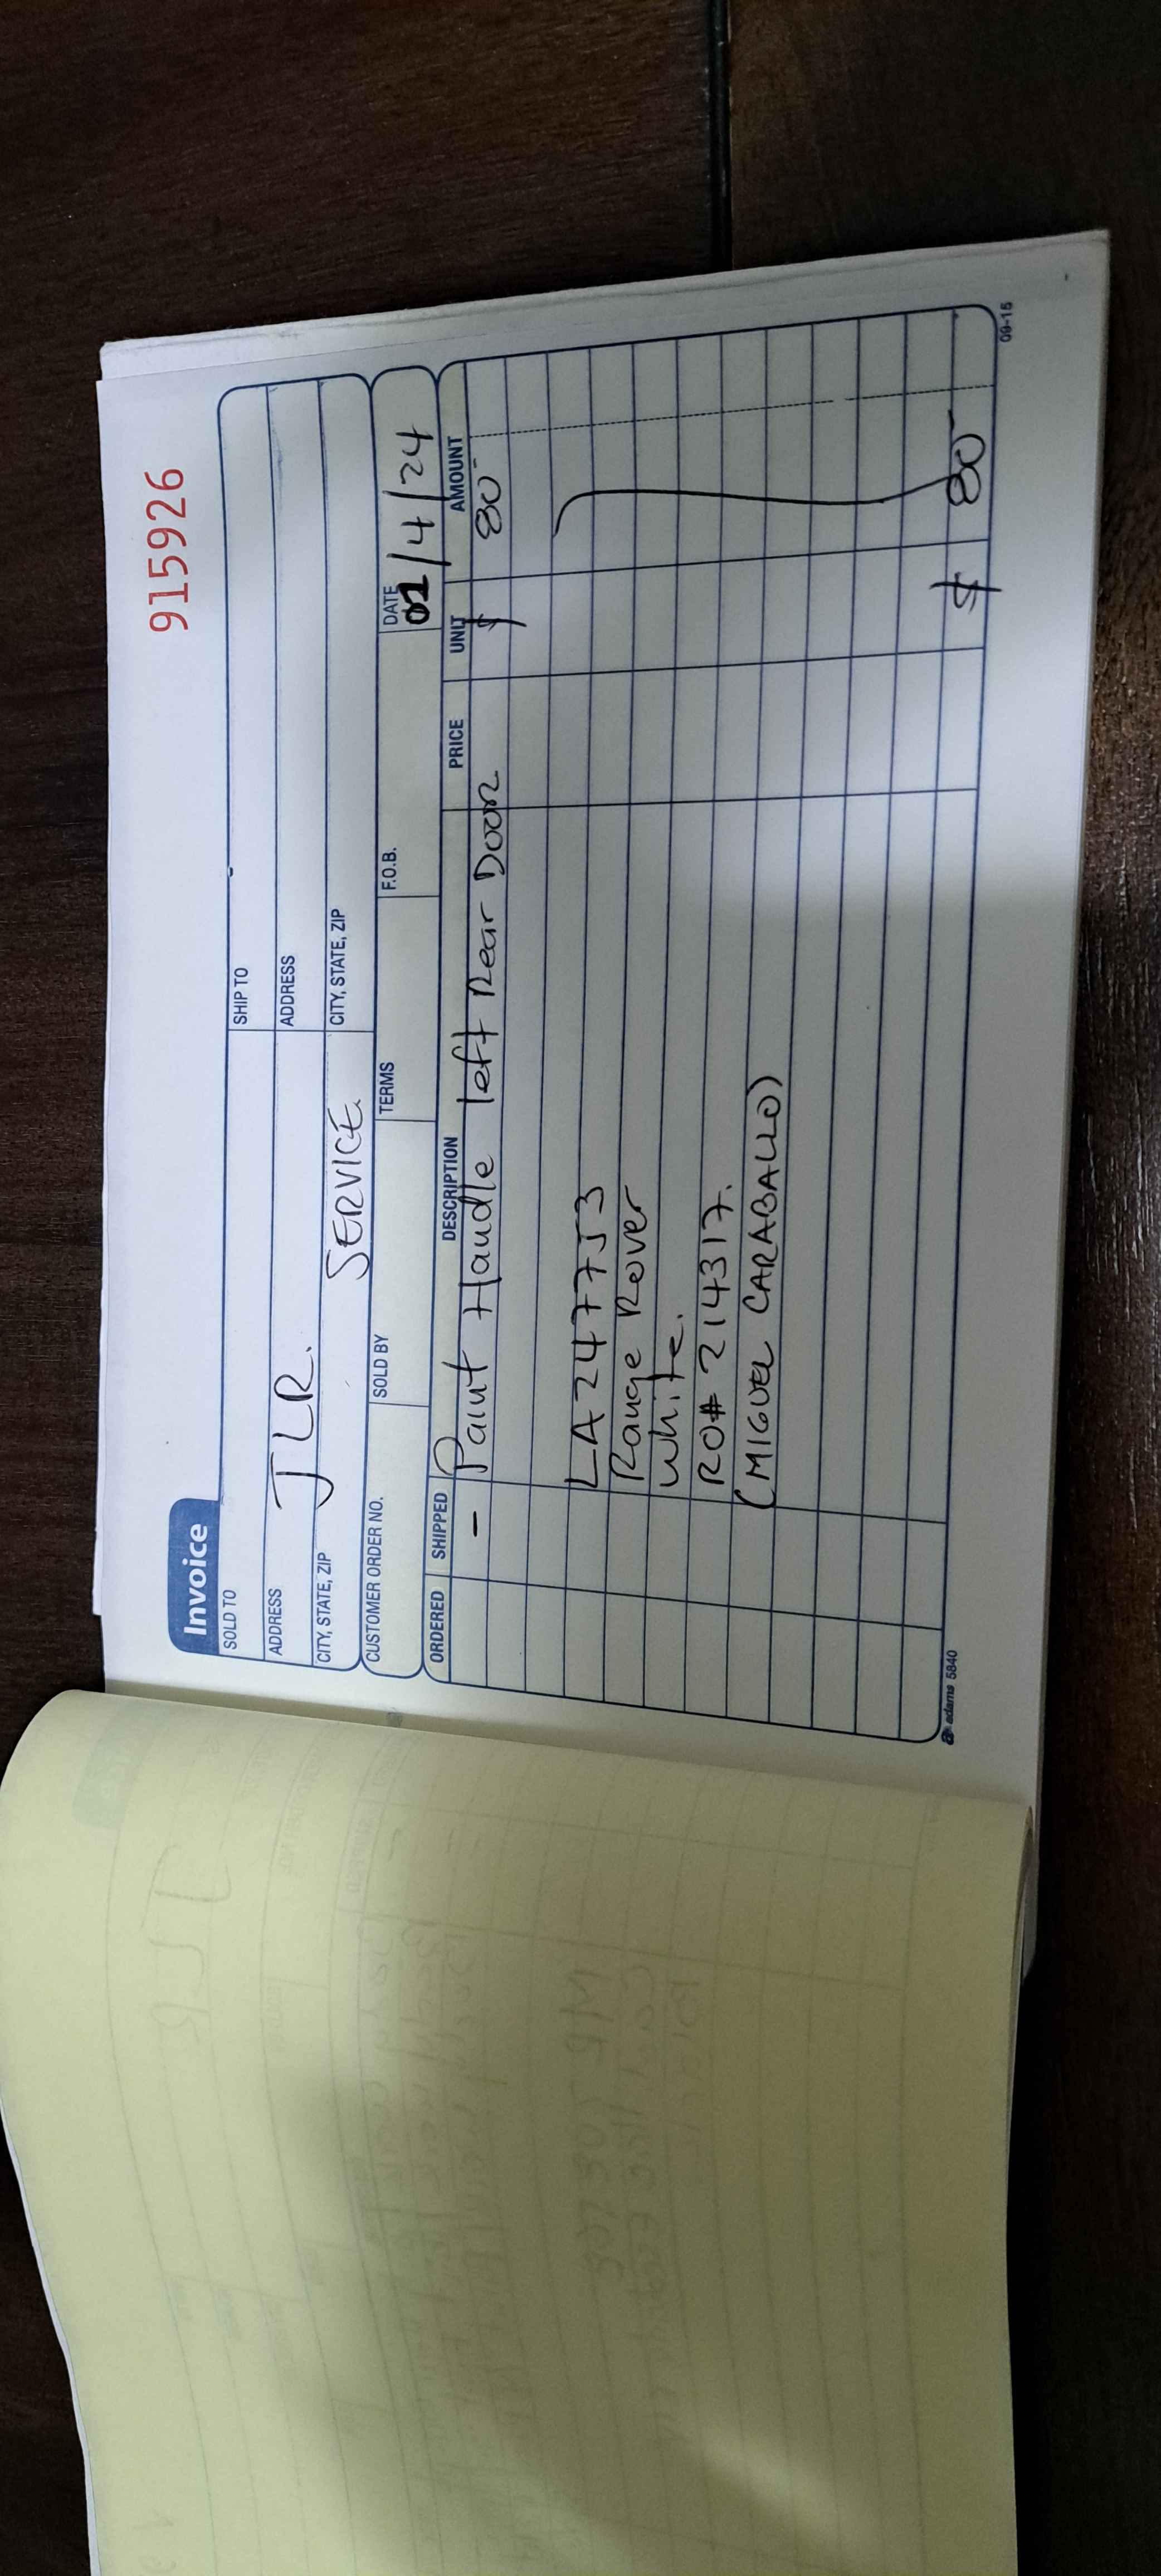 915926
Invoice
SOLD TO
SHIP TO
ADDRESS
ADDRESS
JLR.
CITY, STATE, ZIP
SERVICE.
CITY, STATE, ZIP
CUSTOMER ORDER NO.
SOLD BY
TERMS
F.O.B.
DATE
01/4/24
ORDERED
SHIPPED
DESCRIPTION
PRICE
UNIT
AMOUNT
- Paint Handle left Rear Door $ 80-
LA247753
Range Rover
White.
RO# 214317.
(MIGUEL CARABALLO)
$ 80-
adams 5840
09-15